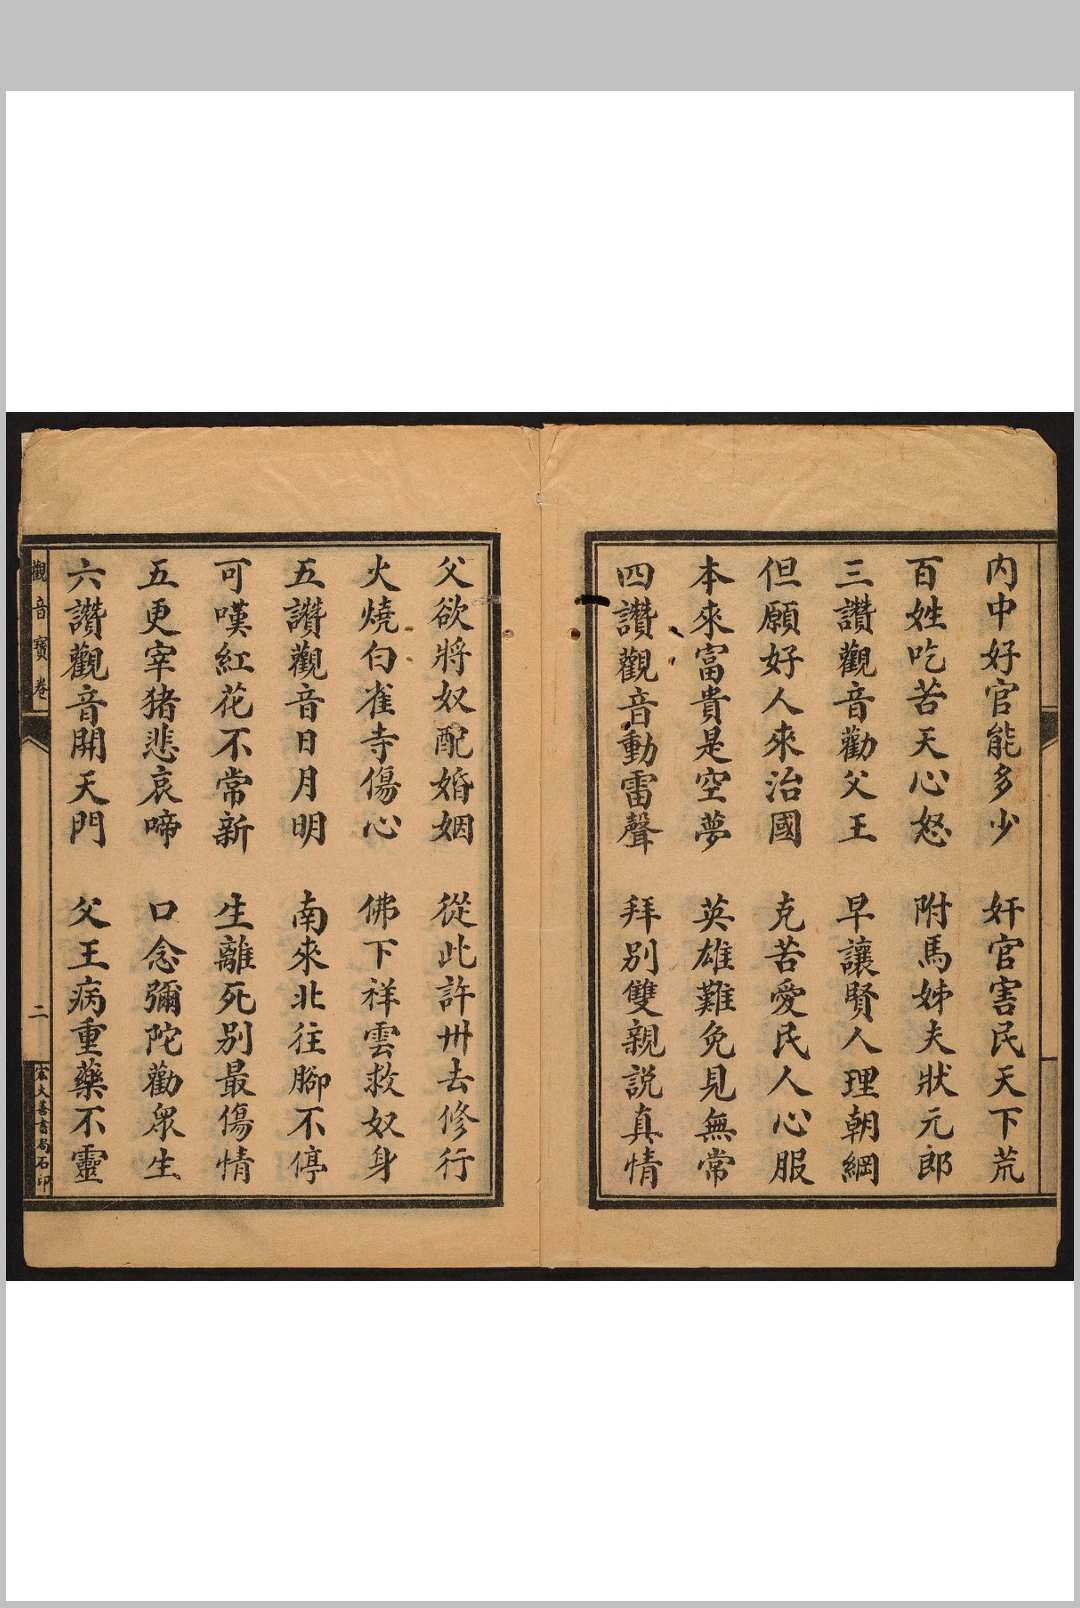 內中好官能多少　奸官害民天下荒
百姓吃苦天心怒　附馬姊夫狀元郎
三讚觀音勸父王　早讓賢人理朝綱
但願好人來治國　克苦愛民人心服
本來富貴是空夢　英雄難免見無常
四讚觀音動雷聲　拜別雙親説真情
父欲將奴配婚姻　從此許卅去修行
火燒白雀寺傷心　佛下祥雲救奴身
五讚觀音日月明　南來北往腳不停
可嘆紅花不常新　生離死別最傷情
五更宰猪悲哀啼　口念彌陀勸眾生
六讚觀音開天門　父王病重藥不靈
觀音寶卷　二　宏大善書局石印